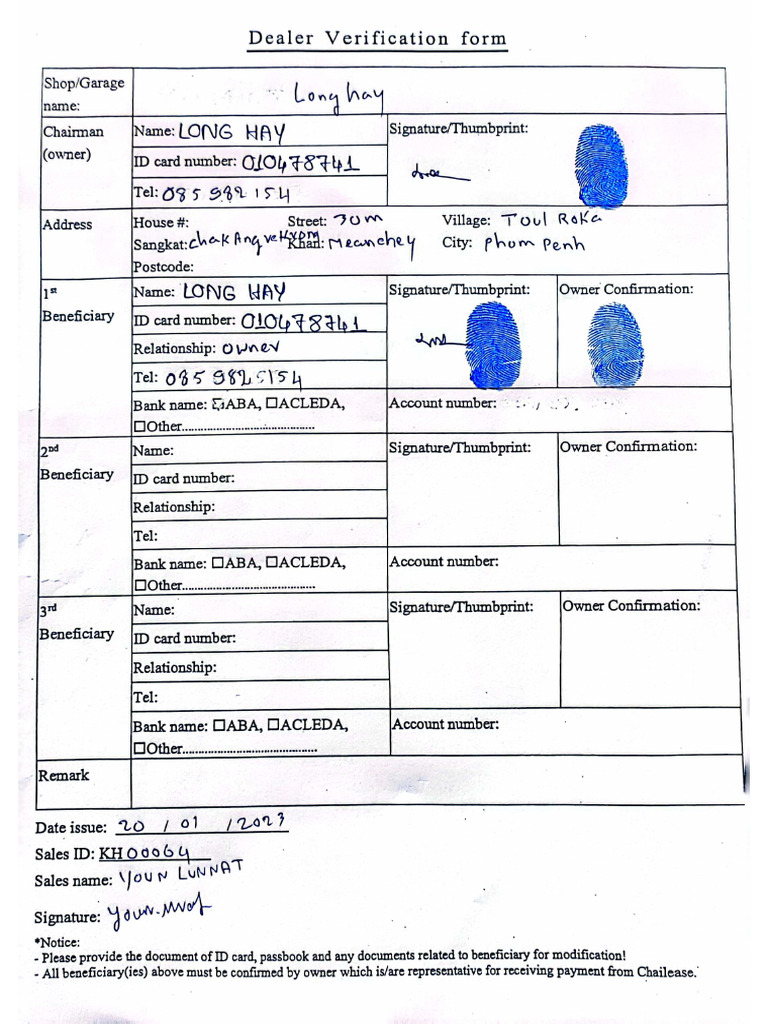 Dealer Verification form
Shop/Garage name: Long hay
Chairman (owner)
Name: LONG HAY
ID card number: 010478741
Tel: 085 982 154
Signature/Thumbprint:
Address
House #: Street: 30m Village: Toul Roka
Sangkat: chak Angre Krom Khan: Meanchey City: phom penh
Postcode:
1st Beneficiary
Name: LONG HAY
ID card number: 010478741
Relationship: owner
Tel: 085 982 154
Signature/Thumbprint:
Owner Confirmation:
Bank name: ☑ABA, ☐ACLEDA,
☐Other..........................................
Account number:
2nd Beneficiary
Name:
ID card number:
Relationship:
Tel:
Signature/Thumbprint:
Owner Confirmation:
Bank name: ☐ABA, ☐ACLEDA,
☐Other..........................................
Account number:
3rd Beneficiary
Name:
ID card number:
Relationship:
Tel:
Signature/Thumbprint:
Owner Confirmation:
Bank name: ☐ABA, ☐ACLEDA,
☐Other..........................................
Account number:
Remark
Date issue: 20 / 01 / 2023
Sales ID: KH00064
Sales name: YOUN LUNNAT
Signature:
*Notice:
- Please provide the document of ID card, passbook and any documents related to beneficiary for modification!
- All beneficiary(ies) above must be confirmed by owner which is/are representative for receiving payment from Chailease.